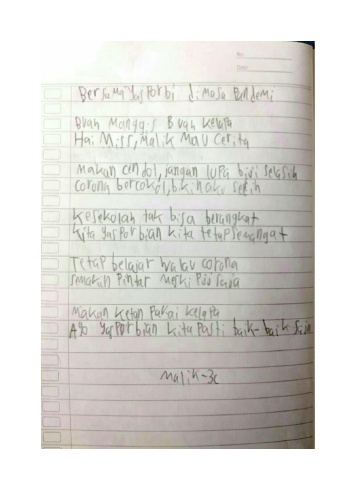 No:
Date:
Bersama Yasporbi dimasa Pandemi
Buah Manggis Buah kelapa
Hai Miss, Malik Mau Cerita
Makan cendol, jangan lupa biji selasih
Corona bercokol, bikin aku sedih
Kesekolah tak bisa berangkat
Kita yasporbian kita tetap semangat
Tetap belajar walau corona
semakin Pintar meski PJJ saja
Makan Ketan Pakai Kelapa
Ayo Yasporbian kita Pasti baik-baik Saja
Malik-3c